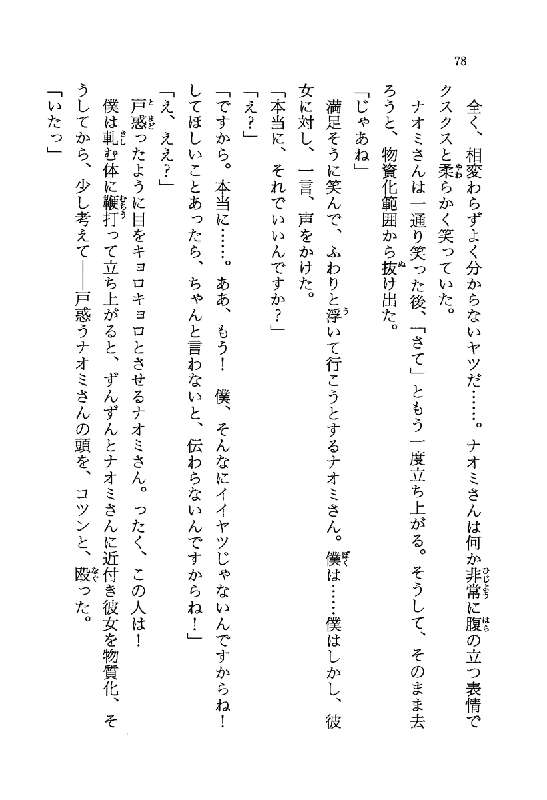 78
全く、相変わらずよく分からないヤツだ……。ナオミさんは何か非常に腹の立つ表情で
クスクスと柔らかく笑っていた。
ナオミさんは一通り笑った後、「さて」ともう一度立ち上がる。そうして、そのまま去
ろうと、物資化範囲から抜け出た。
「じゃあね」
満足そうに笑んで、ふわりと浮いて行こうとするナオミさん。僕は……僕はしかし、彼
女に対し、一言、声をかけた。
「本当に、それでいいんですか？」
「え？」
「ですから。本当に……。ああ、もう！　僕、そんなにイイヤツじゃないんですからね！
してほしいことあったら、ちゃんと言わないと、伝わらないんですからね！」
「え、ええ？」
戸惑ったように目をキョロキョロとさせるナオミさん。ったく、この人は！
僕は軋む体に鞭打って立ち上がると、ずんずんとナオミさんに近付き彼女を物質化、そ
うしてから、少し考えて――戸惑うナオミさんの頭を、コツンと、殴った。
「いたっ」